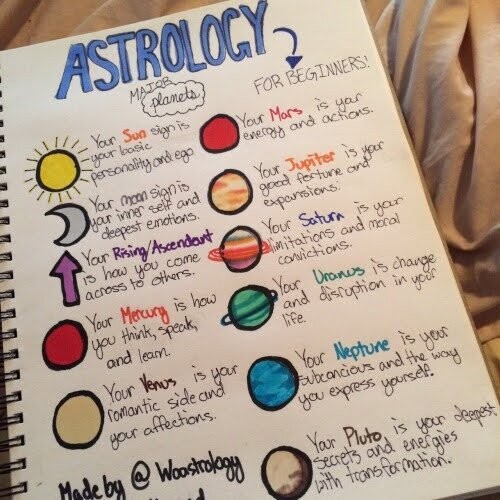 ASTROLOGY
MAJOR
planets
FOR BEGINNERS!
Your Sun sign is
your basic
personality and ego
Your moon sign is
your inner self and
deepest emotions.
Your Rising/Ascendant
is how you come
across to others.
Your Mercury is how
you think, speak,
and learn.
Your Venus is your
romantic side and
your affections.
Made by @ Woostrology
Your Mars is your
energy and actions.
Your Jupiter is your
good fortune and
expansions.
Your Saturn is your
limitations and moral
convictions.
Your Uranus is change
and disruption in your
life.
Your Neptune is your
subconcious and the way
you express yourself.
Your Pluto is your deepest
secrets and energies
with transformation.